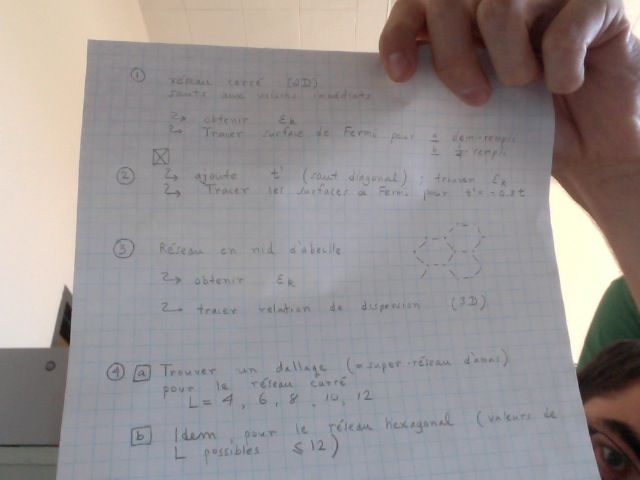 ① réseau carré (2D)
sauts aux voisins immédiats
↳ obtenir εk
↳ Tracer surface de Fermi pour a demi-rempli
b 1/4-rempli
② ↳ ajoute t' (saut diagonal) ; trouver εk
↳ Tracer les surfaces de Fermi pour
③ Réseau en nid d'abeille
↳ obtenir εk
↳ tracer relation de dispersion (3D)
④ a Trouver un dallage (= super-réseau d'amas)
pour le réseau carré
L = 4, 6, 8, 10, 12
b Idem, pour le réseau hexagonal (valeurs de
L possibles ≤ 12)